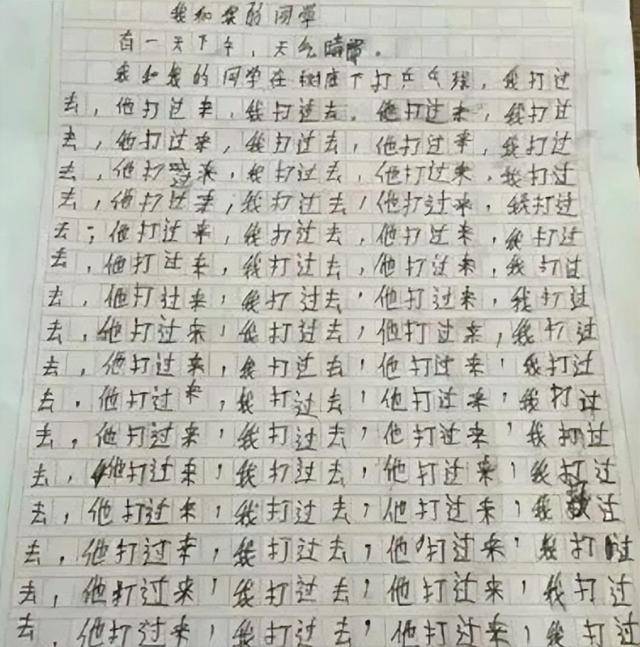 我和我的同学
有一天下午，天气晴朗。
我和我的同学在树底下打乒乓球，我打过
去，他打过来，我打过去。他打过来，我打过
去，他打过来，我打过去，他打过来，我打过
去，他打过来，我打过去，他打过来，我打过
去，他打过来，我打过去，他打过来，我打过
去；他打过来，我打过去，他打过来，我打过
去，他打过来，我打过去，他打过来，我打过
去，他打过来，我打过去，他打过来，我打过
去，他打过来，我打过去，他打过来，我打过
去，他打过来，我打过去，他打过来，我打过
去，他打过来，我打过去，他打过来，我打过
去，他打过来，我打过去，他打过来，我打过
去，他打过来，我打过去，他打过来，我打过
去，他打过来，我打过去，他打过来，我过
去，他打过来，我打过去，他打过来，我打过
去，他打过来，我打过去，他打过来，我打过
去，他打过来，我打过去，他打过来，我打过